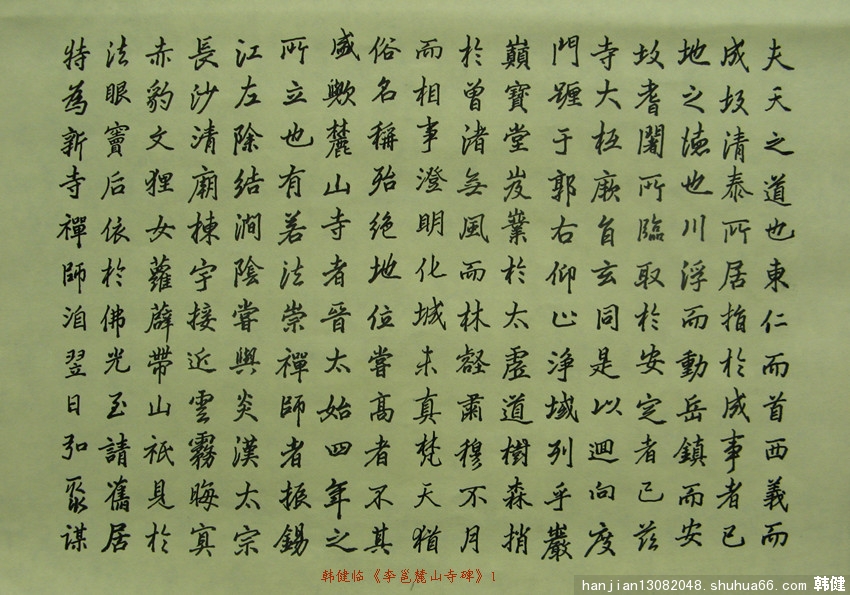 夫天之道也東仁而首西義而
成圾清泰所居指於成事者已
地之德也川浮而動岳鎮而安
圾耆闍所臨取於安定者已茲
寺大枑厥自玄同是以迴向度
門躔于郭右仰止淨域列乎巖
巔寶堂岌業於太虛道樹森捎
於曾渚無風而林壑肅穆不月
而相事澄明化城未真梵天猶
俗名稱殆絕地位嘗高者不其
盛歟麓山寺者晉太始四年之
所立也有若法崇禪師者振錫
江左除結澗陰嘗與炎漢太宗
長沙清廟棟宇接近雲霧晦冥
赤豹文狸女蘿薜帶山祇見於
法眼竇后依於佛光至請舊居
特為新寺禪師洎翌日弘聚謀
韩健临《李邕麓山寺碑》1
hanjian13082048.shuhua66.com 韩健